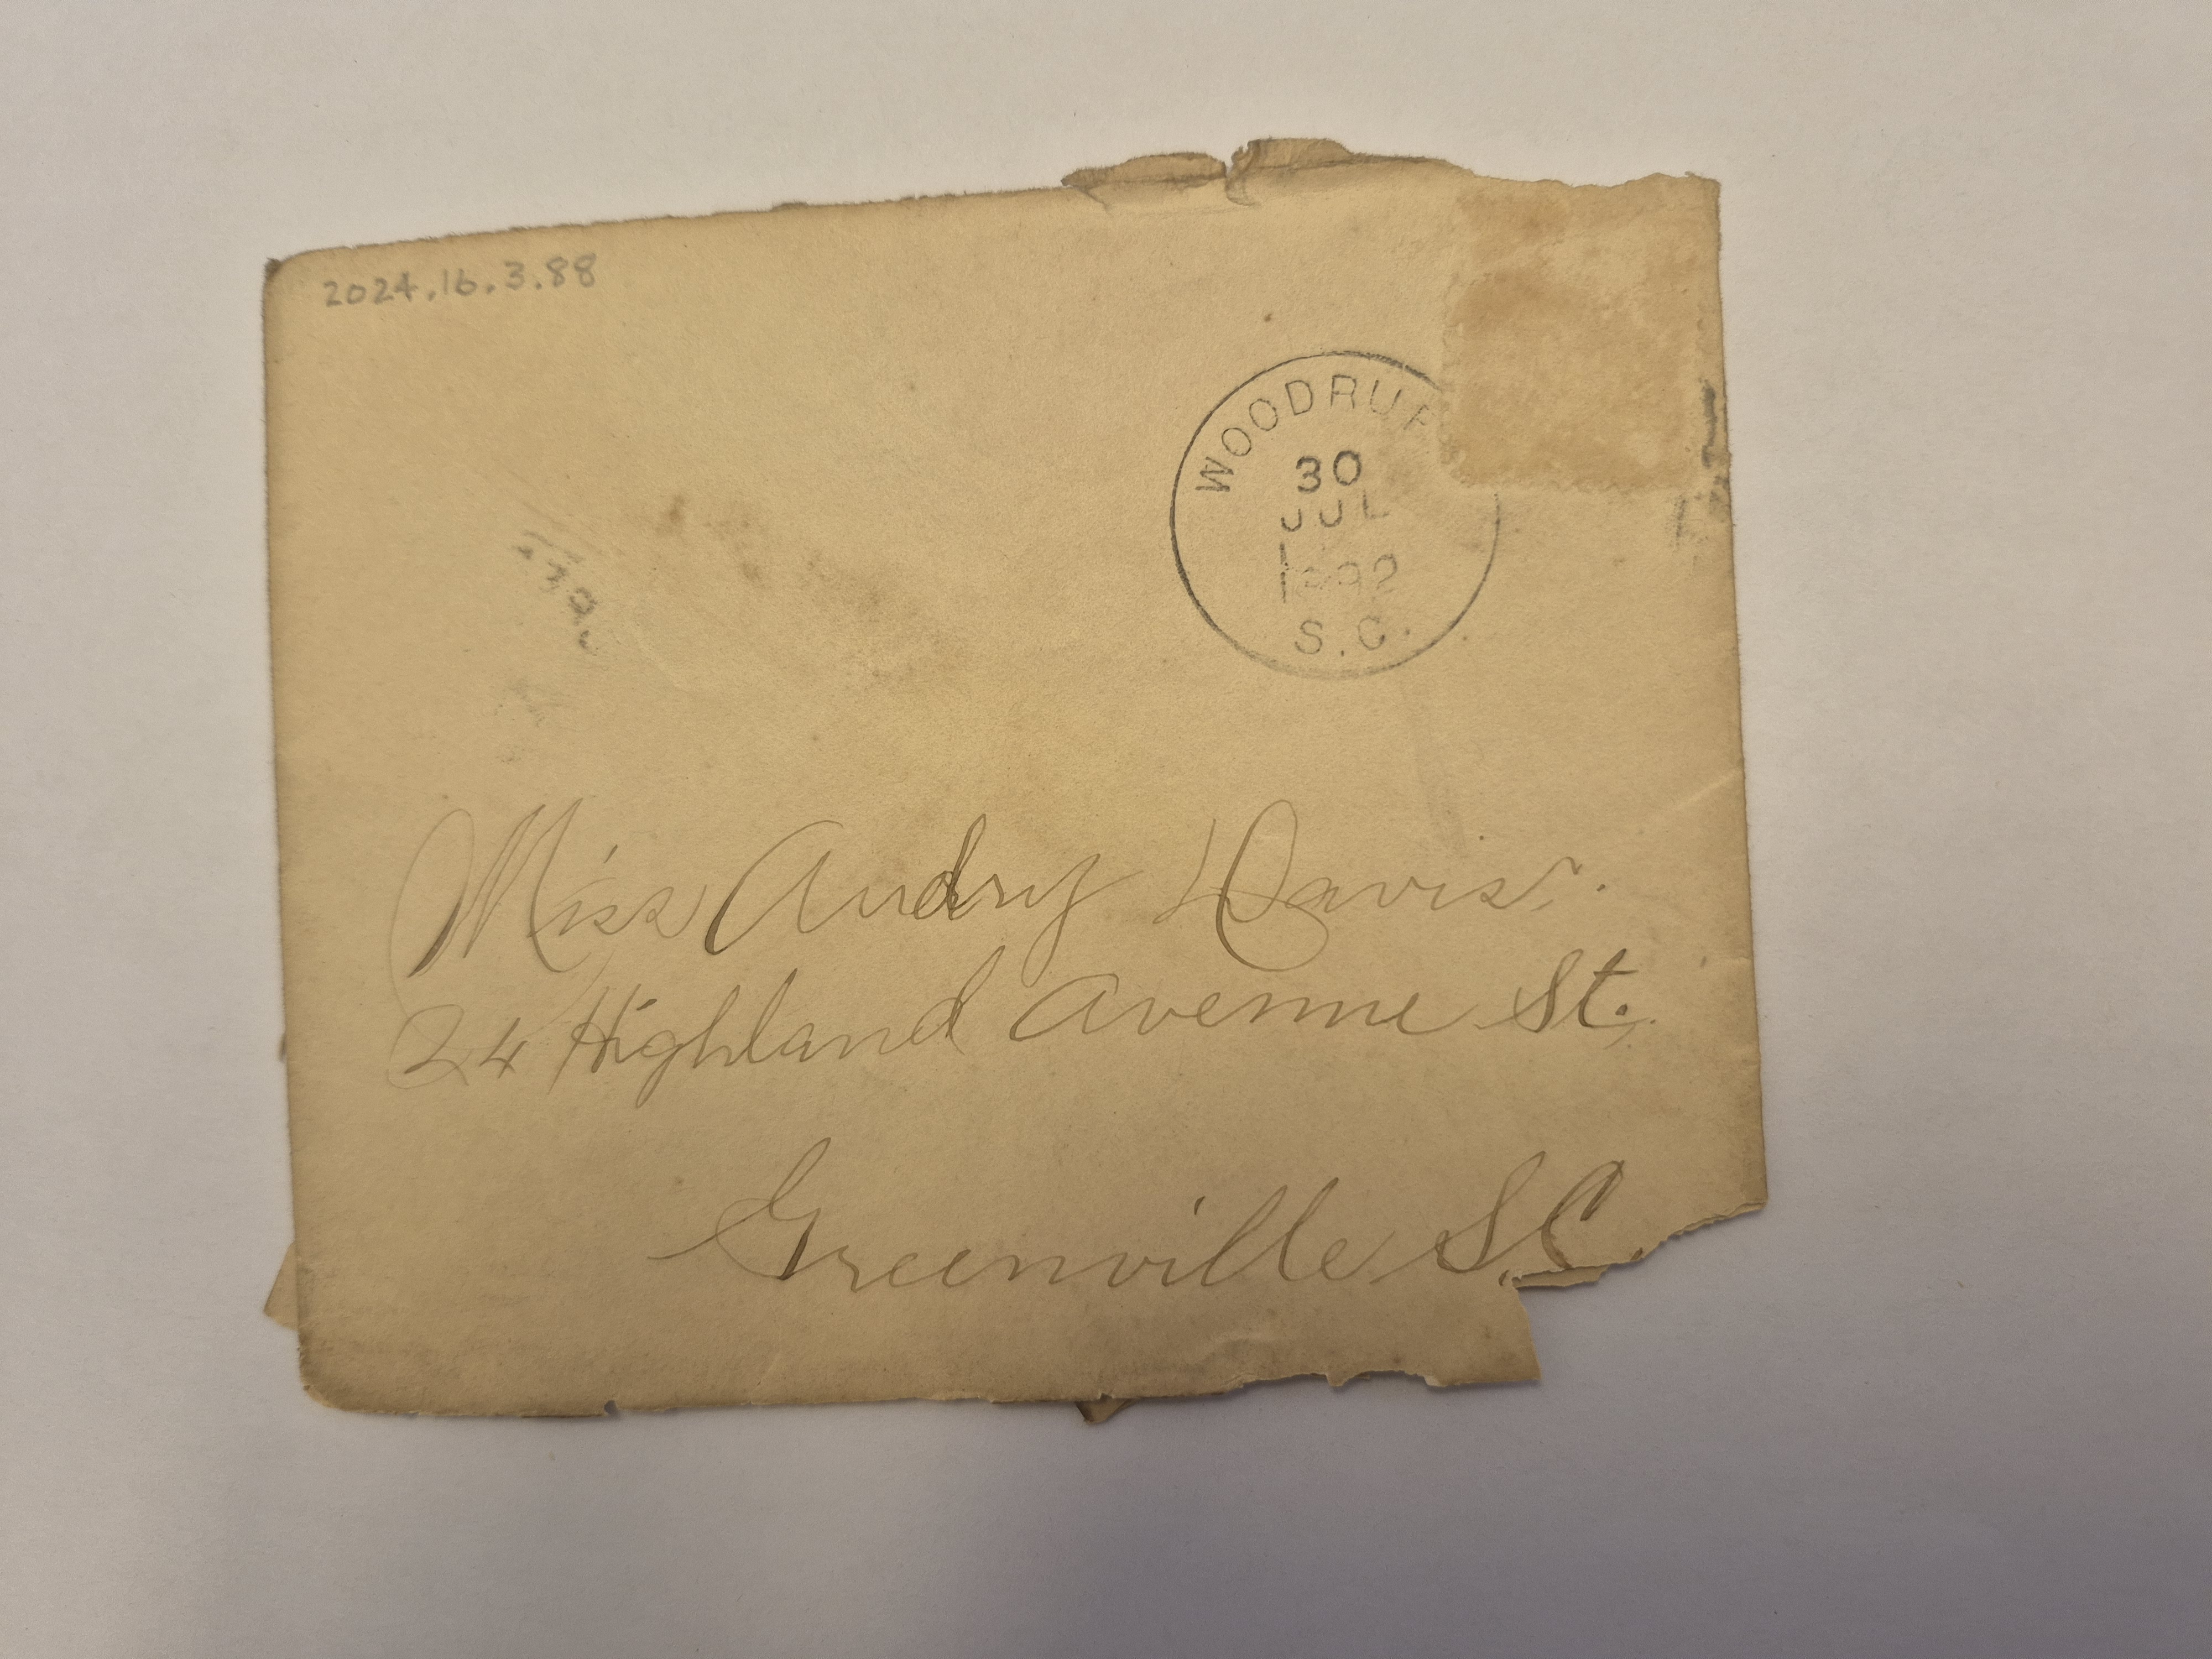 2024.16.3.88
WOODRUF
30
JUL
1892
S.C.
Miss Audry Davis.
24 Highland Avenue St.
Greenville S.C.